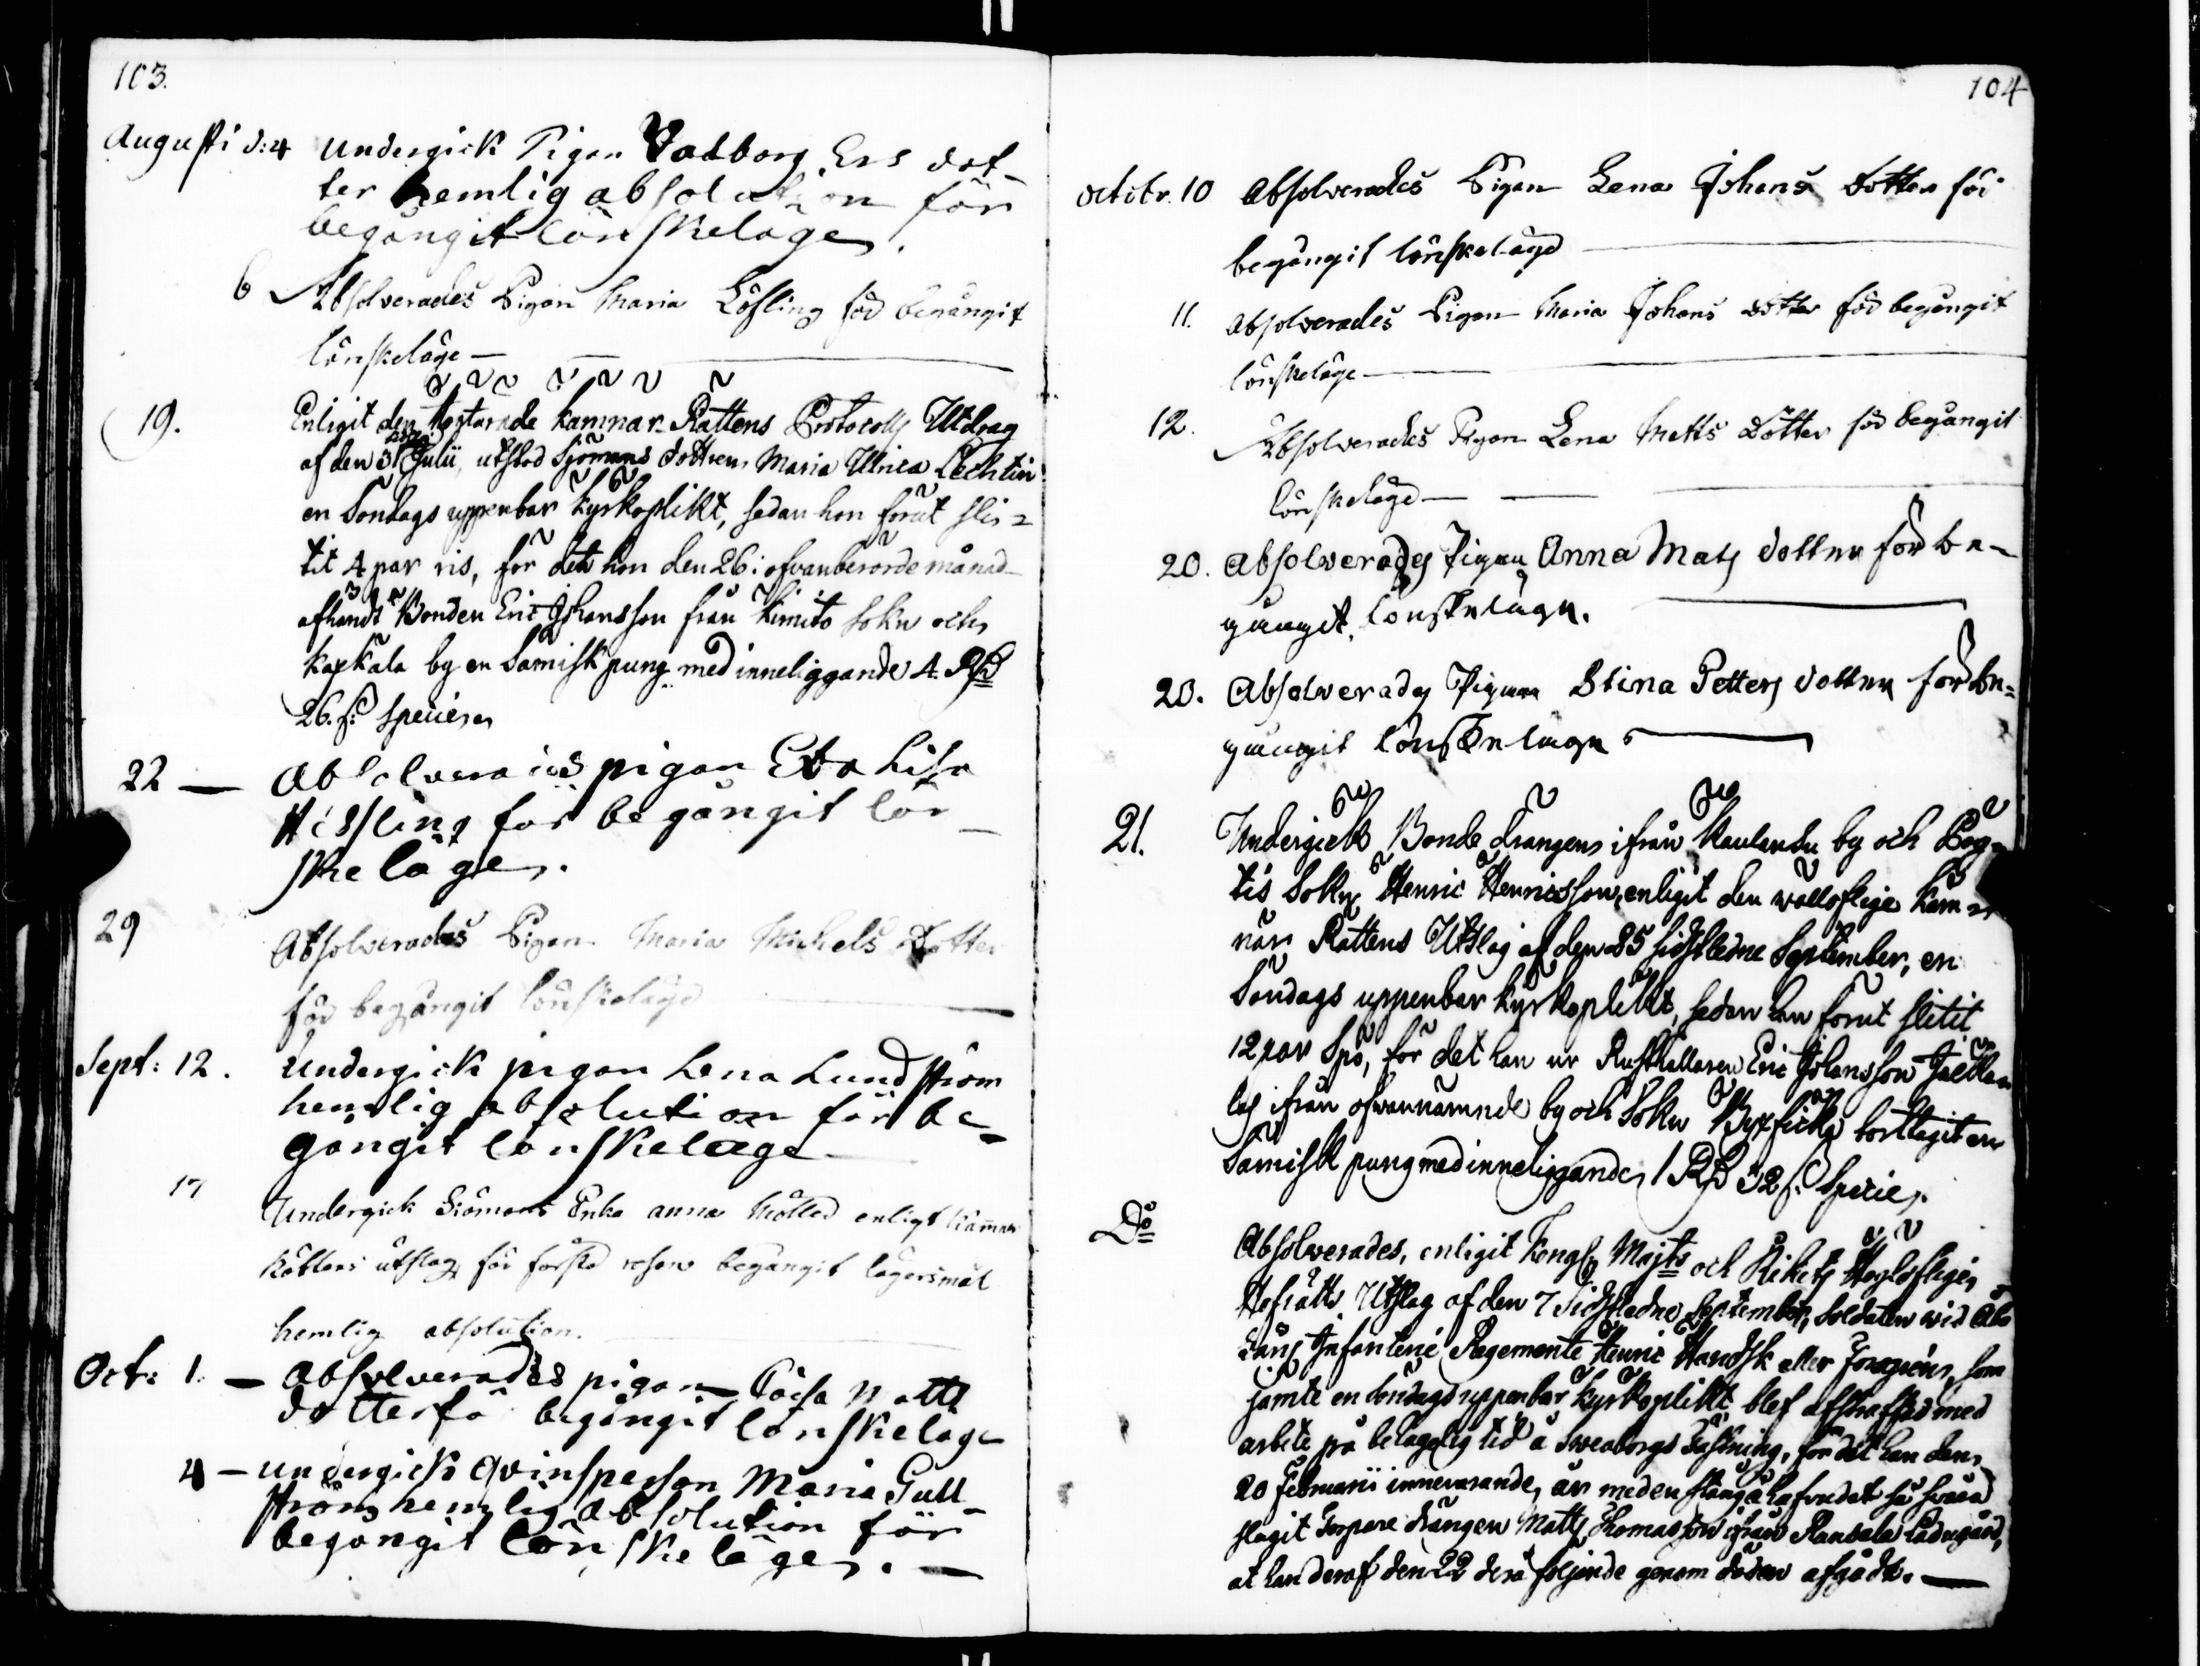 103.
Augusti d: 4 Undergick Pigan Vadborg Ers dot-
ter hemlig absolution för
begångit lönskeläge.
6 Absolverades Pigan Maria Löfling för begångit
lönskeläge —
19. Enligit den Kämnärs Rättens Protocolls Utdrag
af den 31 Julii, utstod Sjömans dottren Maria Ulrica Lechtin
en Söndags uppenbar kyrkoplikt, sedan hon förut sli=
tit 4 par ris, för det hon den 26: ofvanberörde månad
afhändt Bonden Eric Johansson från Kimito Sokn och
Kaxkala by en Sämisk pung med inneliggande 4. Rd
26. s: Specie.
22 — Absolverades pigan Eva Lisa
Hissling för begångit lön-
skeläge.
29 Absolverades Pigan Maria Michels Dotter
för begångit lönskeläge
Sept: 12. Undergick pigan Lena Lundström
hemlig absolution för be-
gångit lönskeläge
17 Undergick Siömans Enka Anna enligt Kämnärs
Rättens utslag för första resan begångit lägersmål
hemlig absolution.
Oct: 1. — Absolverades pigan Caisa Matts
dotter fö begångit lönskeläge
4 — undergick qvinsperson Maria Gull-
ström hemlig absolution för
begångit lönskeläge. —
104
octbr. 10 Absolverades Pigan Lena Johans Dotter för
begångit lönskeläge
11. Absolverades Pigan Maria Johans Dotter för begångit
lönskeläge
12. Absolverades Pigan Lena Matts Dotter för begångit
lönskeläge
20. Absolverades Pigan Anna Mats dotter för be-
gångit lönskeläge.
20. Absolverades Pigan Stina Petters dotter för be=
gångit lönskeläge
21. Undergick Bonde drängen ifrån Kaulandu by och Pöy-
tis Sokn Henric Henricsson, enligit den wällofliga Käm-
närs Rättens Utslag af den 25 sidstledne September, en
Söndags uppenbar kyrkoplikt, sedan han förut slitit
12 par Spö, för det han ur Rusthållaren Eric Johansson
ifrån ofvannämnde by och Sokn Byxficka borttagit en
Sämisk pung med inneliggande 1 Rd 32 s: Specie.
Do Absolverades, enligit Kongl. Majts och Rikets Högloflige
Hofrätts Utslag af den 7 Sidstledne September, Soldaten wid Åbo
Läns Infanterie Regemente Henric Handsk eller Forsgréns, som
jämte en Söndags uppenbar kyrkoplikt blef afstraffad med
arbete på behagelig tid å Sweaborgs Fästning, för det han den
20 Februarii innevarande år med en stång å hufvudet så svåra
slagit Torpare drängen Matts Thomasson ifrån Ransala Ladugård,
at han deraf den 22 derå följande genom döden afgådt. —